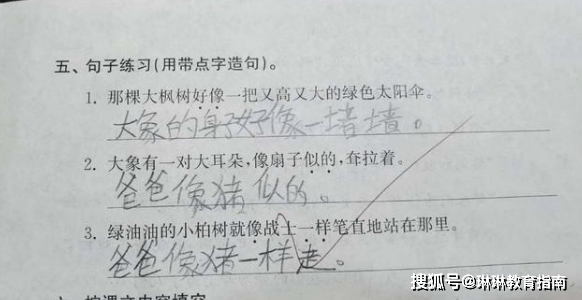 五、句子练习(用带点字造句)。
1. 那棵大枫树好像一把又高又大的绿色太阳伞。
大象的身子好像一堵墙。
2. 大象有一对大耳朵,像扇子似的,耷拉着。
爸爸像猪似的。
3. 绿油油的小柏树就像战士一样笔直地站在那里。
爸爸像猪一样走。
搜狐号@琳琳教育指南